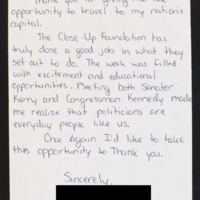 Thank you for giving me the
opportunity to travel to my nation's
capital.
The Close-Up Foundation has
truly done a good job in what they
set out to do. The week was filled
with excitement and educational
opportunities. Meeting both Senator
Kerry and Congressman Kennedy made
me realize that politicians are
everyday people like us.
Once Again I'd like to take
this opportunity to Thank you.
Sincerely,